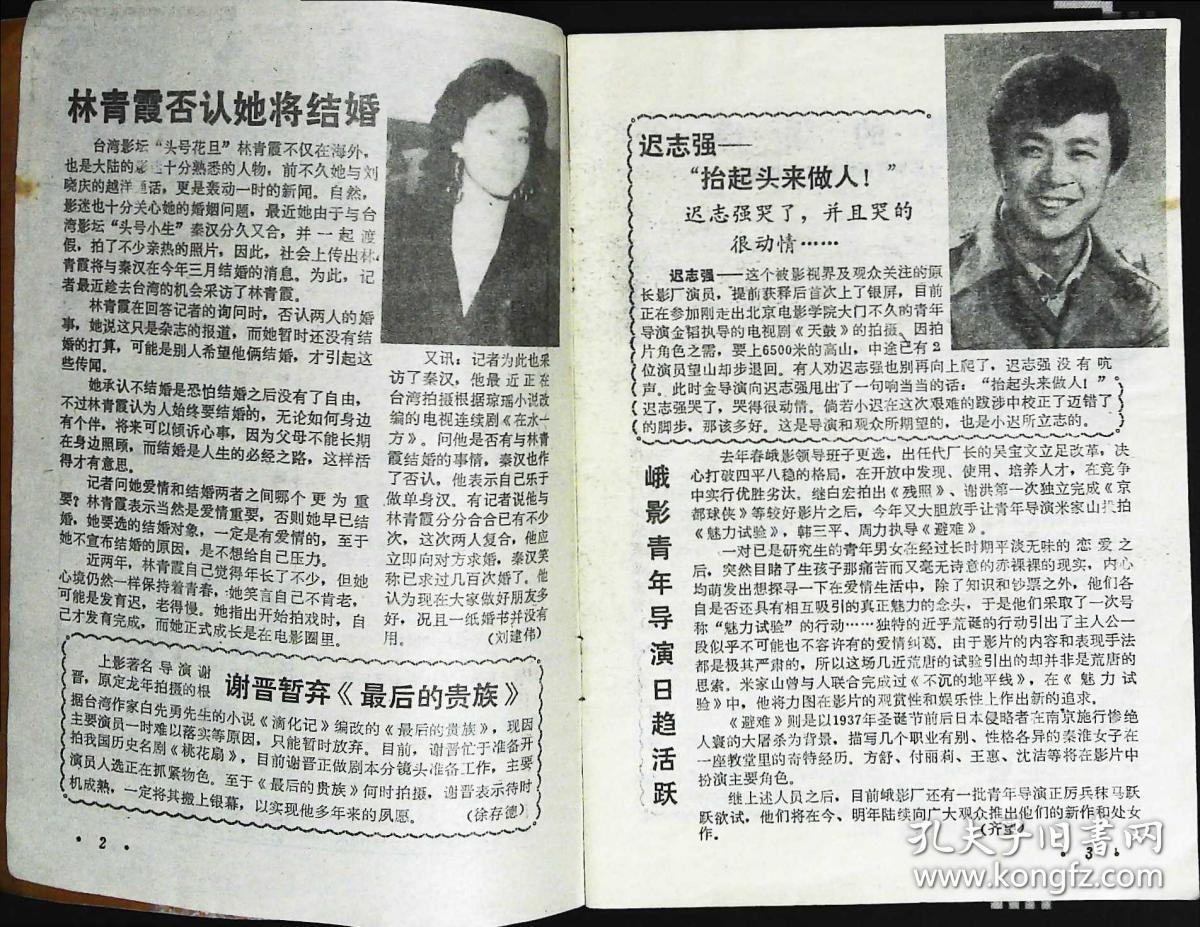 林青霞否认她将结婚
台湾影坛“头号花旦”林青霞不仅在海外，
也是大陆的影 十分熟悉的人物，前不久她与刘
晓庆的越洋 话，更是轰动一时的新闻。自然，
影迷也十分关心她的婚姻问题，最近她由于与台
湾影坛“头号小生”秦汉分久又合，并一起渡
假，拍了不少亲热的照片，因此，社会上传出林
青霞将与秦汉在今年三月结婚的消息。为此，记
者最近趁去台湾的机会采访了林青霞。
林青霞在回答记者的询问时，否认两人的婚
事，她说这只是杂志的报道，而她暂时还没有结
婚的打算，可能是别人希望他俩结婚，才引起这
些传闻。
她承认不结婚是恐怕结婚之后没有了自由，
不过林青霞认为人始终要结婚的，无论如何身边
有个伴，将来可以倾诉心事，因为父母不能长期
在身边照顾，而结婚是人生的必经之路，这样活
得才有意思。
记者问她爱情和结婚两者之间哪个更为重
要？林青霞表示当然是爱情重要，否则她早已结
婚，她要选的结婚对象，一定是有爱情的，至于
她不宣布结婚的原因，是不想给自己压力。
近两年，林青霞自己觉得年长了不少，但她
心境仍然一样保持着青春，她笑言自己不肯老，
可能是发育迟，老得慢。她指出开始拍戏时，自
己才发育完成，而她正式成长是在电影圈里。
又讯：记者为此也采
访了秦汉，他最近正在
台湾拍摄根据琼瑶小说改
编的电视连续剧《在水一
方》。问他是否有与林青
霞结婚的事情，秦汉也作
了否认，他表示自己乐于
做单身汉。有记者说他与
林青霞分分合合已有不少
次，这次两人复合，他应
立即向对方求婚，秦汉笑
称已求过几百次婚了。他
认为现在大家做好朋友多
好，况且一纸婚书并没有
用。（刘建伟）
谢晋暂弃《最后的贵族》
上影著名导演谢
晋，原定龙年拍摄的根
据台湾作家白先勇先生的小说《滴化记》编改的《最后的贵族》，现因
主要演员一时难以落实等原因，只能暂时放弃。目前，谢晋忙于准备开
拍我国历史名剧《桃花扇》，目前谢晋正做剧本分镜头准备工作，主要
演员人选正在抓紧物色。至于《最后的贵族》何时拍摄，谢晋表示待时
机成熟，一定将其搬上银幕，以实现他多年来的夙愿。（徐存德）
• 2 •
迟志强——
“抬起头来做人！”
迟志强哭了，并且哭的
很动情……
迟志强——这个被影视界及观众关注的原
长影厂演员，提前获释后首次上了银屏，目前
正在参加刚走出北京电影学院大门不久的青年
导演金韬执导的电视剧《天鼓》的拍摄。因拍
片角色之需，要上6500米的高山，中途已有2
位演员望山却步退回。有人劝迟志强也别再向上爬了，迟志强没有吭
声。此时金导演向迟志强甩出了一句响当当的话：“抬起头来做人！”
迟志强哭了，哭得很动情。倘若小迟在这次艰难的跋涉中校正了迈错了
的脚步，那该多好。这是导演和观众所期望的，也是小迟所立志的。
峨影青年导演日趋活跃
去年春峨影领导班子更选，出任代厂长的吴宝文立足改革，决
心打破四平八稳的格局，在开放中发现、使用、培养人才，在竞争
中实行优胜劣汰。继白宏拍出《残照》、谢洪第一次独立完成《京
都球侠》等较好影片之后，今年又大胆放手让青年导演米家山执拍
《魅力试验》，韩三平、周力执导《避难》。
一对已是研究生的青年男女在经过长时期平淡无味的恋爱之
后，突然目睹了生孩子那痛苦而又毫无诗意的赤裸裸的现实，内心
均萌发出想探寻一下在爱情生活中，除了知识和钞票之外，他们各
自是否还具有相互吸引的真正魅力的念头，于是他们采取了一次号
称“魅力试验”的行动……独特的近乎荒诞的行动引出了主人公一
段似乎不可能也不容许有的爱情纠葛。由于影片的内容和表现手法
都是极其严肃的，所以这场几近荒唐的试验引出的却并非是荒唐的
思索。米家山曾与人联合完成过《不沉的地平线》，在《魅力试
验》中，他将力图在影片的观赏性和娱乐性上作出新的追求。
《避难》则是以1937年圣诞节前后日本侵略者在南京施行惨绝
人寰的大屠杀为背景，描写几个职业有别、性格各异的秦淮女子在
一座教堂里的奇特经历。方舒、付丽莉、王惠、沈洁等将在影片中
扮演主要角色。
继上述人员之后，目前峨影厂还有一批青年导演正厉兵秣马跃
跃欲试，他们将在今、明年陆续向广大观众推出他们的新作和处女
作。（齐 ）
• 3 •
孔夫子旧书网
www.kongfz.com